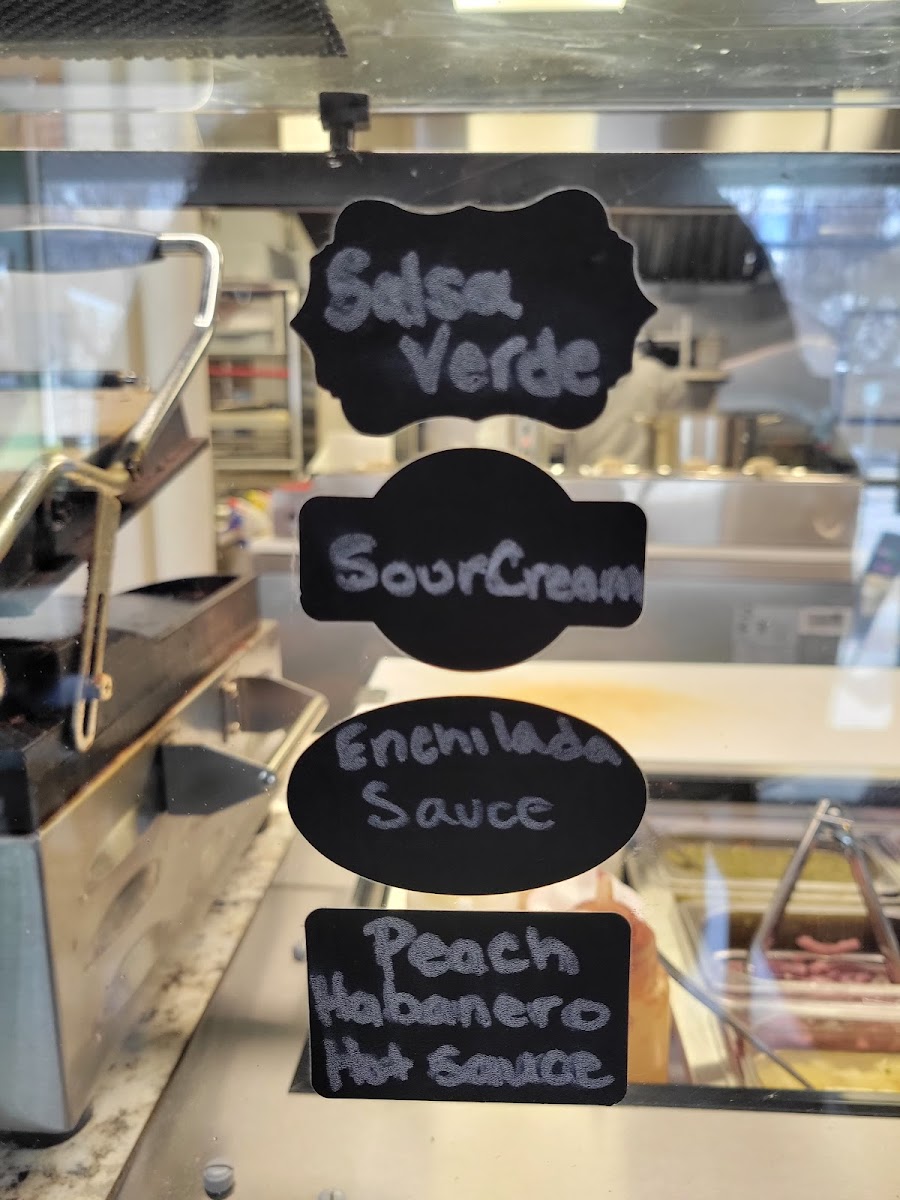 Salsa
Verde
Sour Cream
Enchilada
Sauce
Peach
Habanero
Hot sauce